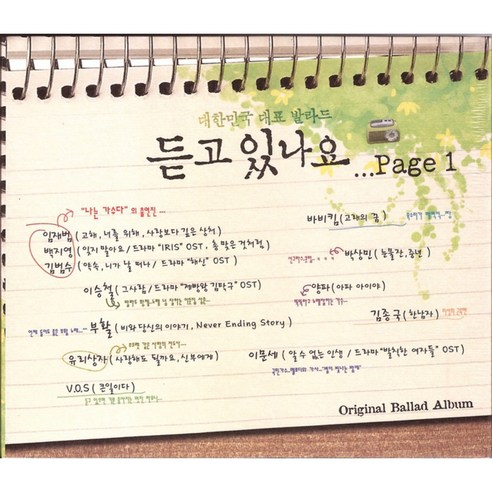 대한민국 대표 발라드
듣고 있나요
...Page 1
"나는 가수다"의 출연진...
임재범 (고해, 너를 위해, 사랑보다 깊은 상처)
백지영 (잊지 말아요 / 드라마 "IRIS" OST, 총 맞은 것처럼)
김범수 (약속, 니가 날 떠나 / 드라마 "해신" OST)
바비킴 (고래의 꿈)
박상민 (눈물잔, 중년)
이승철 (그사람 / 드라마 "제빵왕 김탁구" OST)
양파 (아파 아이야)
부활 (비와 당신의 이야기, Never Ending Story)
김종국 (한남자)
유리상자 (사랑해도 될까요, 신부에게)
이문세 (알 수 없는 인생 / 드라마 "발칙한 여자들" OST)
V.O.S (큰일이다)
Original Ballad Album